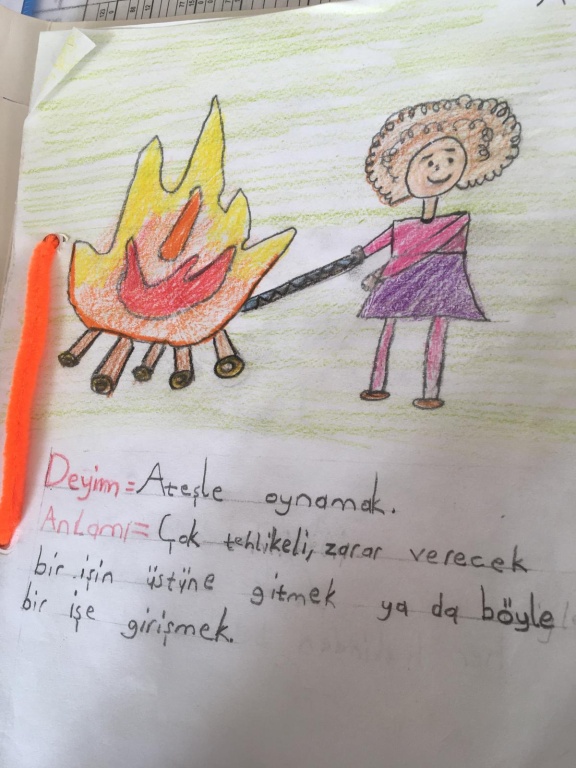 Deyim = Ateşle oynamak.
Anlamı = Çok tehlikeli, zarar verecek
bir işin üstüne gitmek ya da böyle
bir işe girişmek.